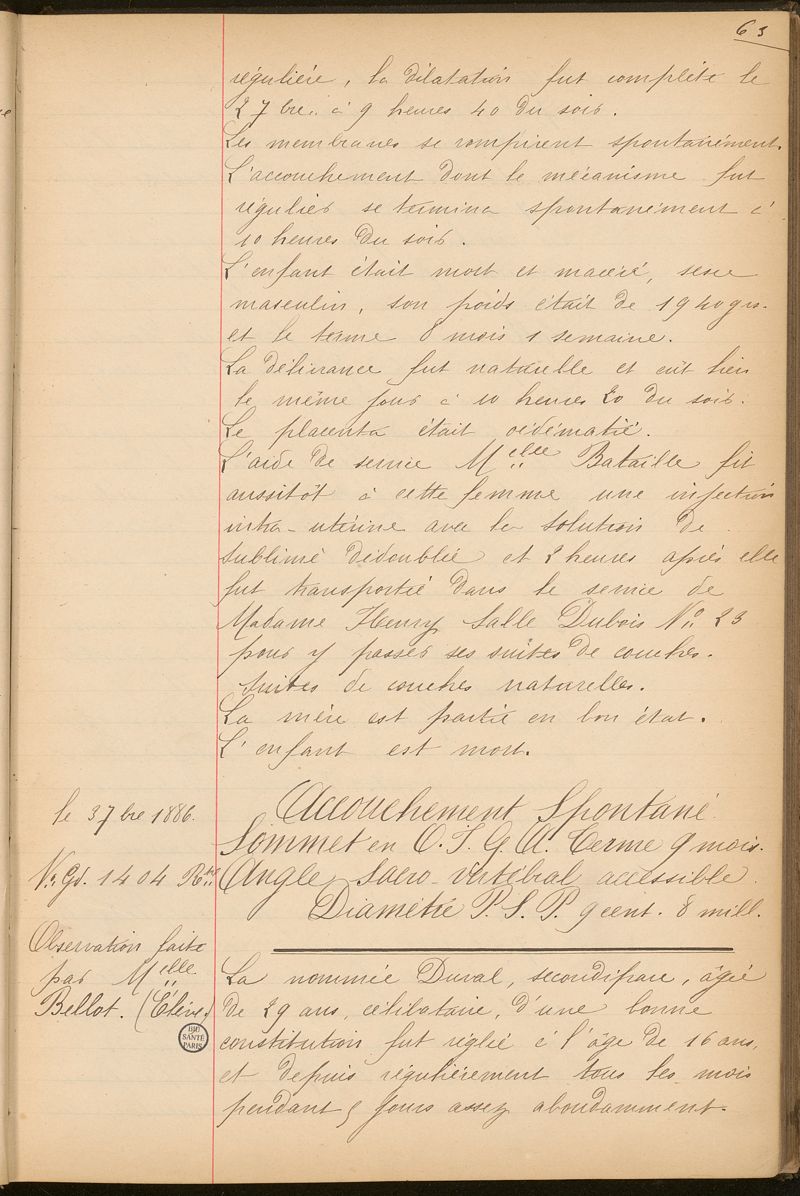 63
régulière, la dilatation fut complète le
2 7bre à 9 heures 40 du soir.
Les membranes se rompirent spontanément.
L'accouchement dont le mécanisme fut
régulier se termina spontanément à
10 heures du soir.
L'enfant était mort et macéré, sexe
masculin, son poids était de 1940 grs.
et le terme 8 mois 1 semaine.
La délivrance fut naturelle et eût lieu
le même jour à 10 heures 20 du soir.
Le placenta était oedématié.
L'aide de service Melle Bataille fit
aussitôt à cette femme une injection
intra-utérine avec la solution de
sublimé dédoublée et 2 heures après elle
fut transportée dans le service de
Madame Henry Salle Dubois No 23
pour y passer ses suites de couches.
Suites de couches naturelles.
La mère est partie en bon état.
L'enfant est mort.
le 3 7bre 1886.
No Gd. 1404 Rtre
Observation faite
par Melle
Bellot. (Élève)
BIU
SANTÉ
PARIS
Accouchement Spontané.
Sommet en O.I.G.A. Terme 9 mois.
Angle Sacro-vertébral accessible
Diamètre P.S.P. 9 cent. 8 mill.
La nommée Duval, secondipare, âgée
de 29 ans, célibataire, d'une bonne
constitution fut réglée à l'âge de 16 ans,
et depuis régulièrement tous les mois
pendant 5 jours assez abondamment.